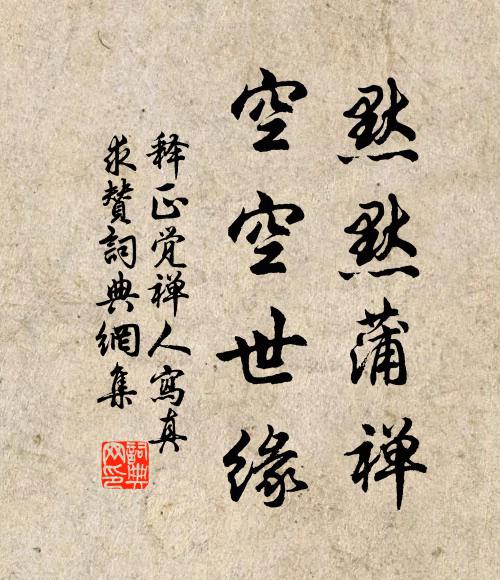 默默蒲禅
空空世缘
释正觉禅人寫真
求赞詞典網集
詞典
网印